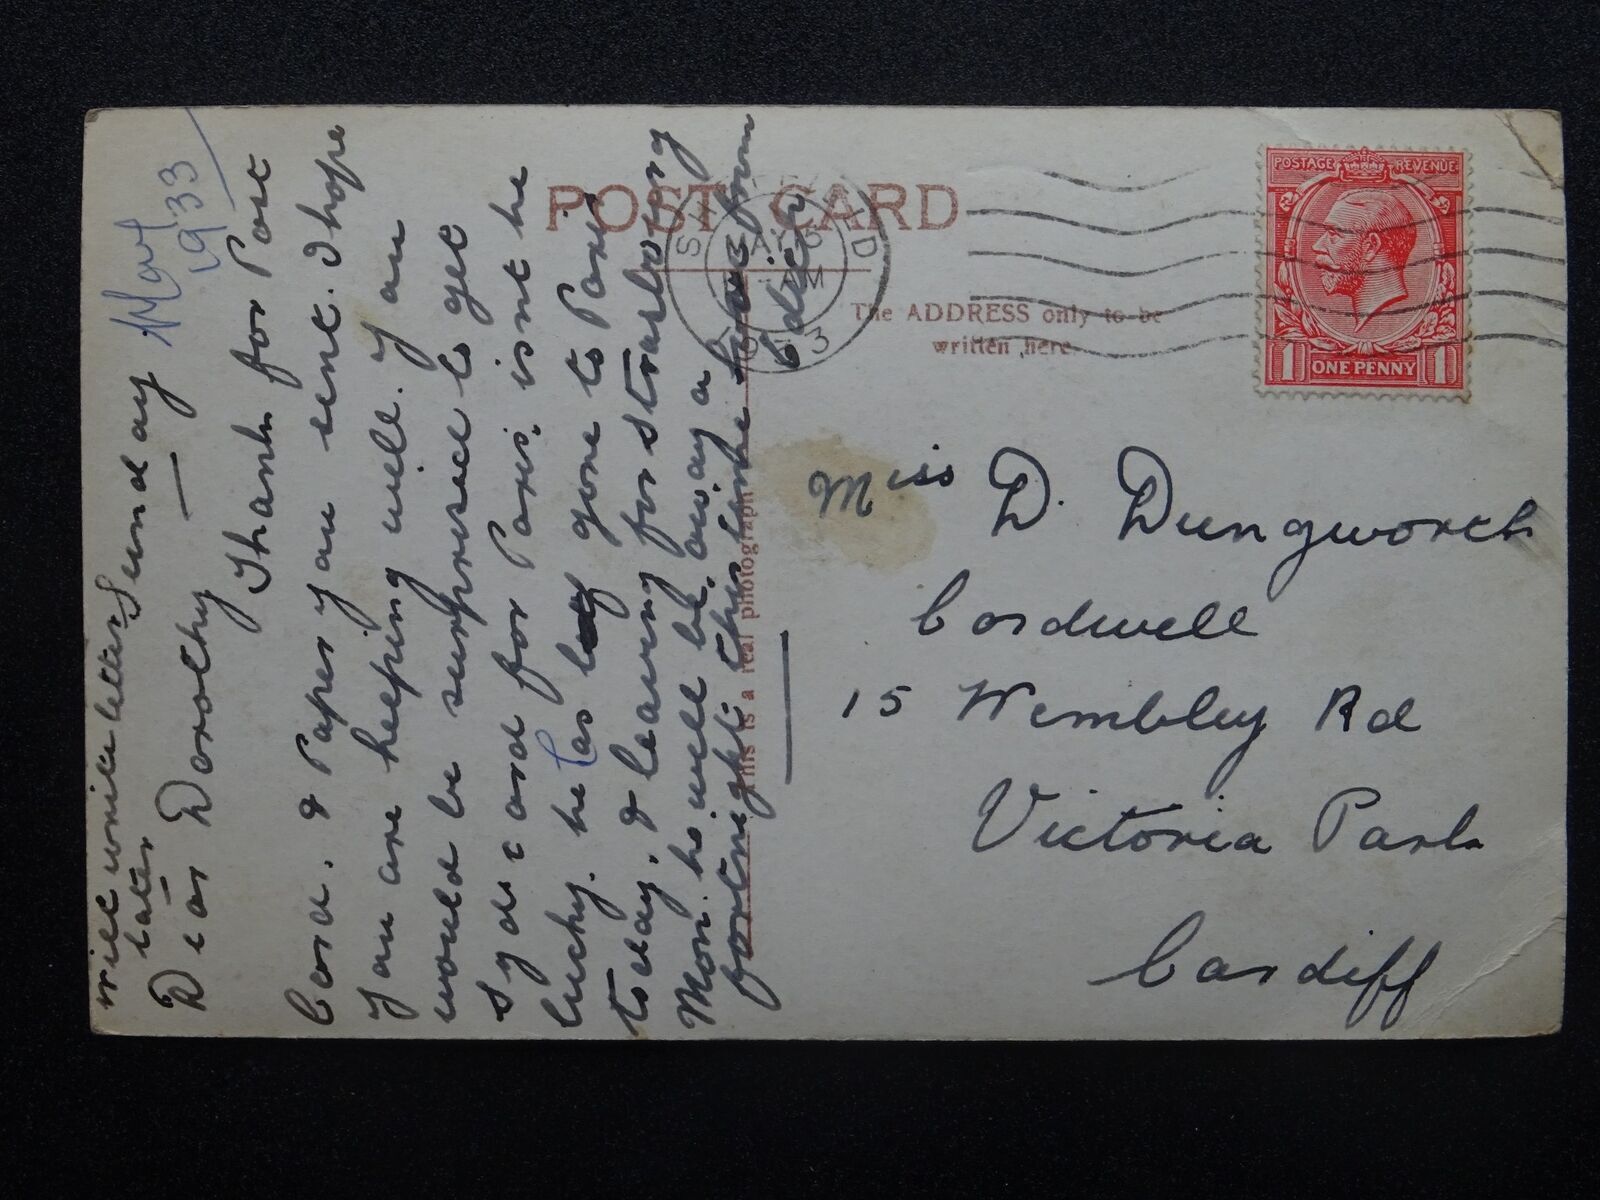 May
1933
will write letter
later
Sunday
Dear Dorothy
Thank for Post
Card. & Paper you sent. I hope
you are keeping well. You
would be surprised to get
Syds card for Paris, isnt he
lucky. he has gone to Paris
today. & leaving for strasbourg
Mon. he will be away a
fortnight. this time
b dear
POST CARD
The ADDRESS only to be
written here.
This is a real photograph
MAY
AM
POSTAGE REVENUE
1 ONE PENNY 1
Miss D. Dungworth
Cordwell
15 Wembley Rd
Victoria Park
Cardiff